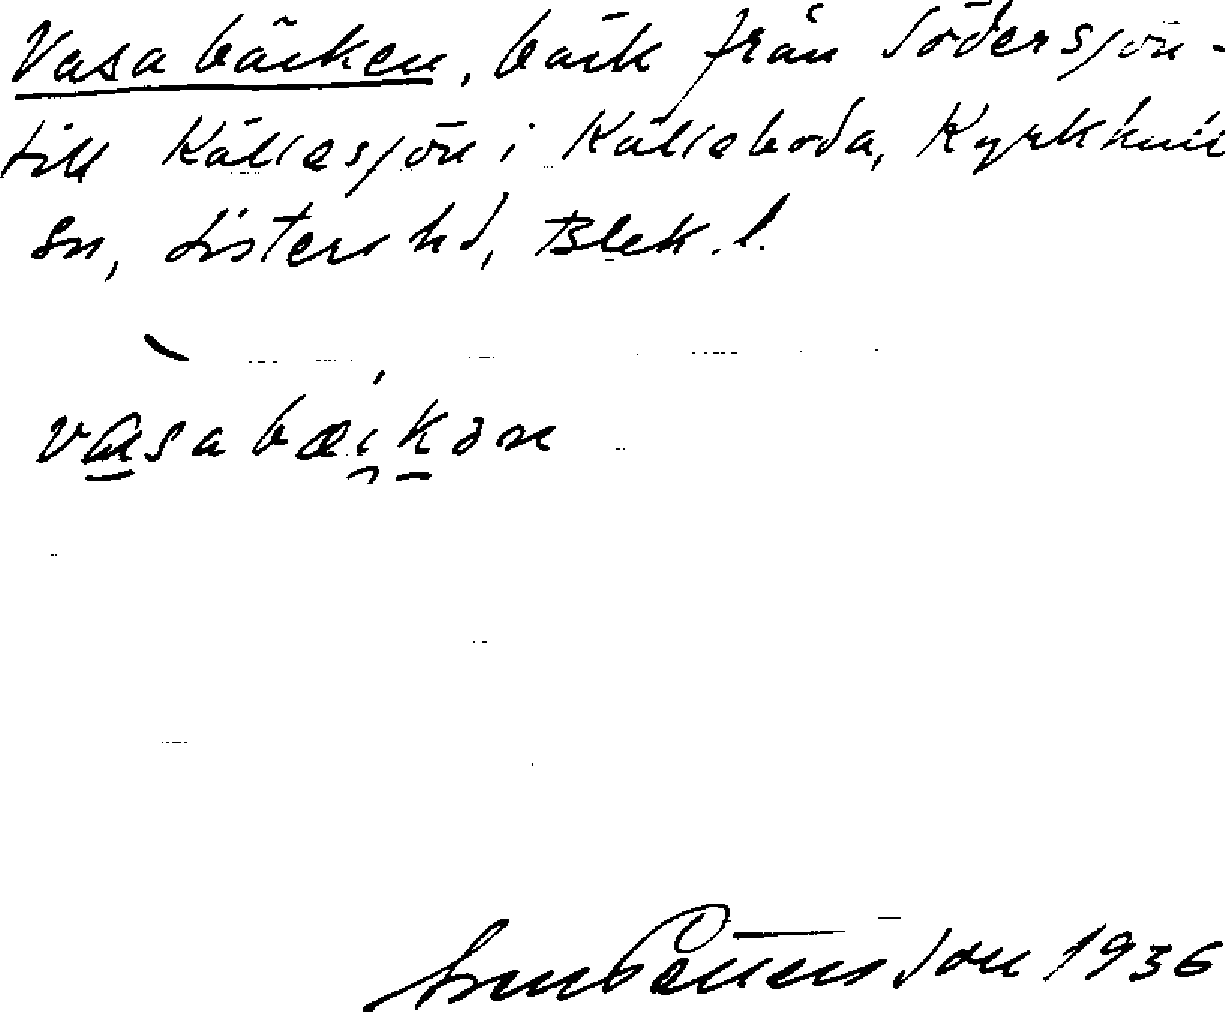 Vasabäcken, bäck från Södersjön -
till Källesjön i Källeboda, Kyrkhult
sn, Listers hd, Blek. l.
vasabæikən
Pettersson 1936